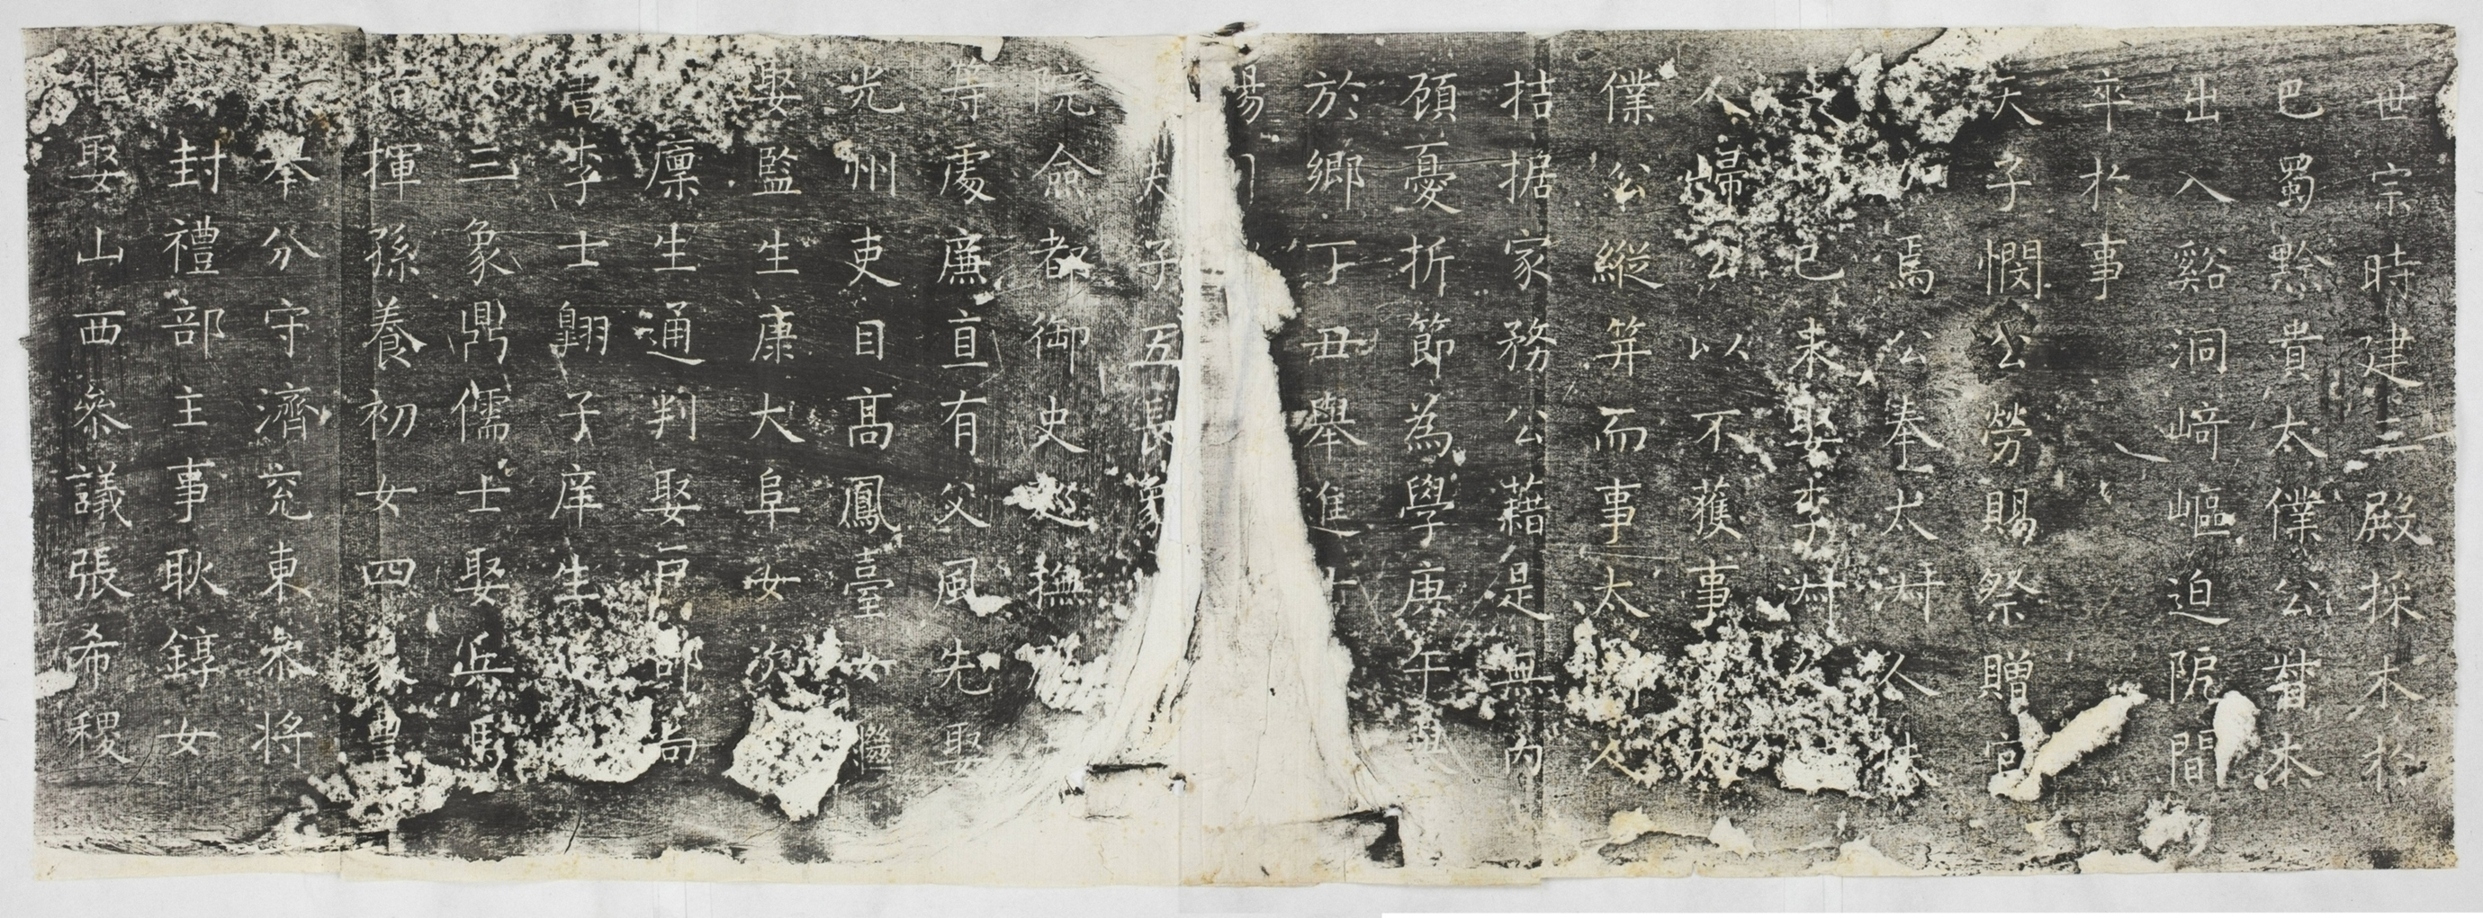 世宗時建三殿採木於
巴蜀黔貴太僕公督木
出入谿洞﨑嶇迫阨間
卒於事
天子憫公勞賜祭贈官
焉公奉太淑人扶
已未娶李淑人
人歸公以不獲事太
僕公縱笄而事太淑人
拮据家務公藉是無內
顧憂折節為學庚午與
於鄉丁丑舉進士
子五長象
院僉都御史巡撫
等處廉直有父風先娶
光州吏目高鳳臺女繼
娶監生康大阜女次
廩生通判娶戶部尚
書李士翱子庠生
三象鼎儒士娶兵馬
指揮孫養初女四象豐
舉分守濟兗東參將
封禮部主事耿錞女
娶山西參議張希稷